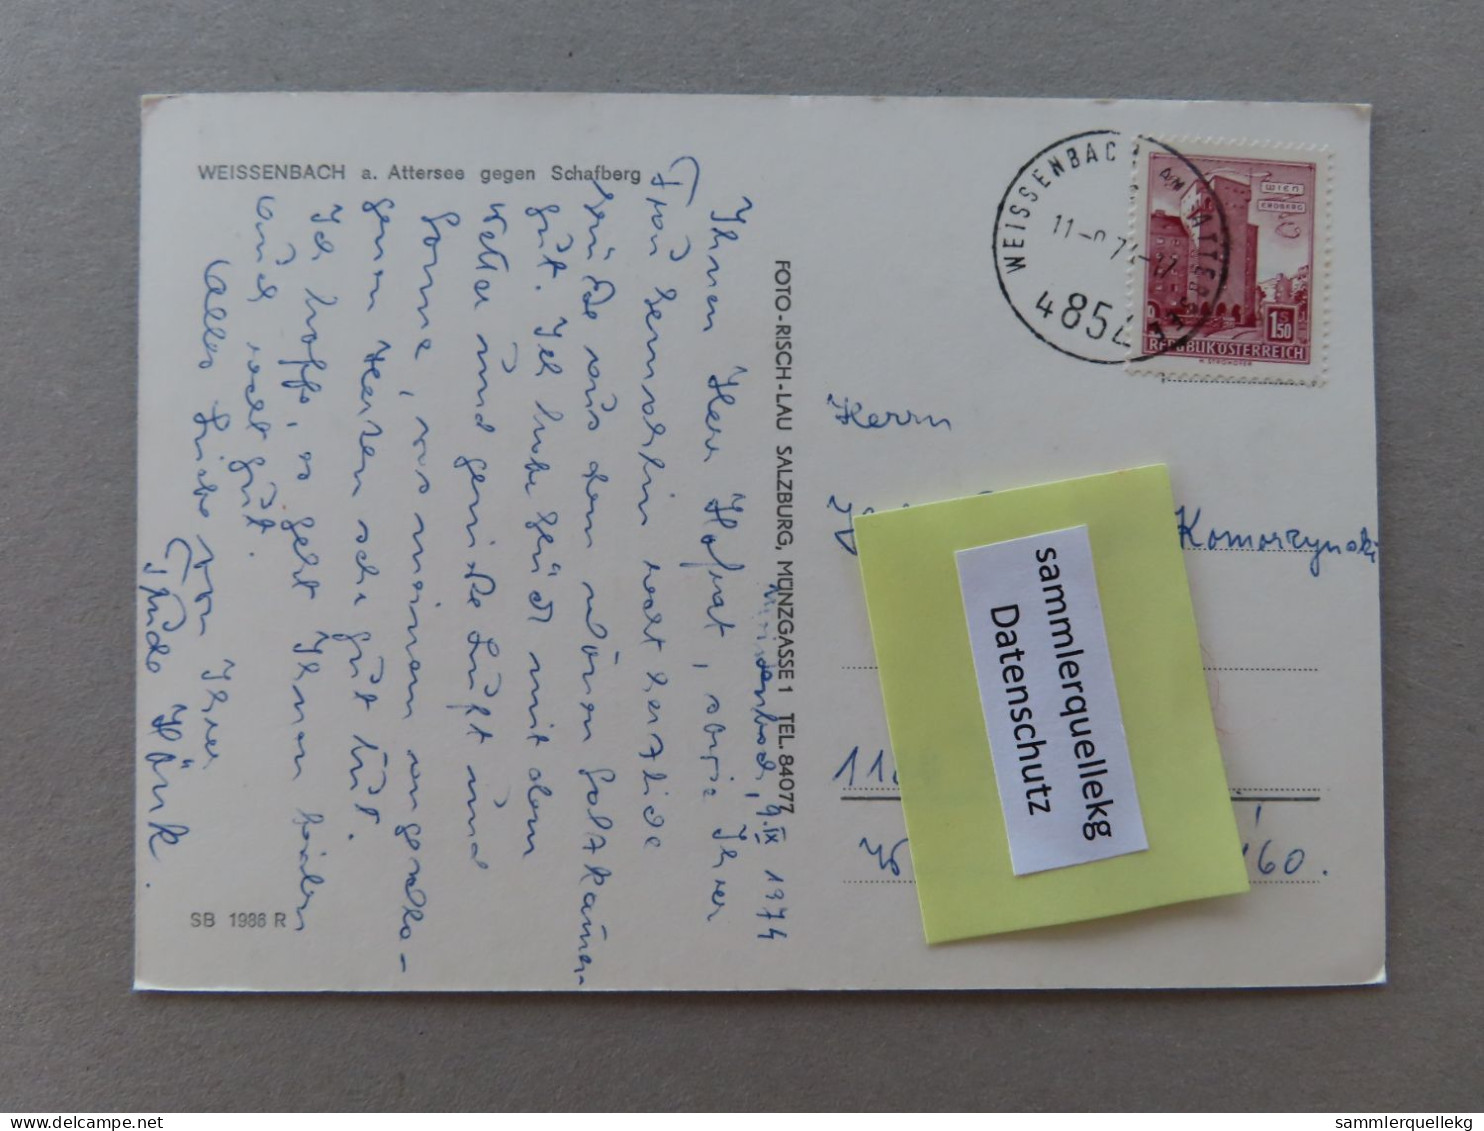 WEISSENBACH a. Attersee gegen Schafberg
Weissenbach, 9.IX 1974
Ihnen Herr Hofrat, sowie Ihrer
Frau Gemahlin recht herzliche
Grüße aus dem schönen Salzkammer-
gut. Ich habe Glück mit dem
Wetter und genieße Luft und
Sonne, was meinem angeschla-
genen Herzen sehr gut tut.
Ich hoffe, es geht Ihnen beiden
auch recht gut.
Alles Liebe von Ihrer
Trude Hönk.
SB 1988 R
FOTO-RISCH-LAU SALZBURG, MÜNZGASSE 1 TEL. 84077
WEISSENBACH AM ATTERSEE
4854
WIEN
ERDBERG
1.50
S
REPUBLIK ÖSTERREICH
Herrn
Komorzynski
11
60.
sammlerquellekg
Datenschutz
www.delcampe.net
sammlerquellekg